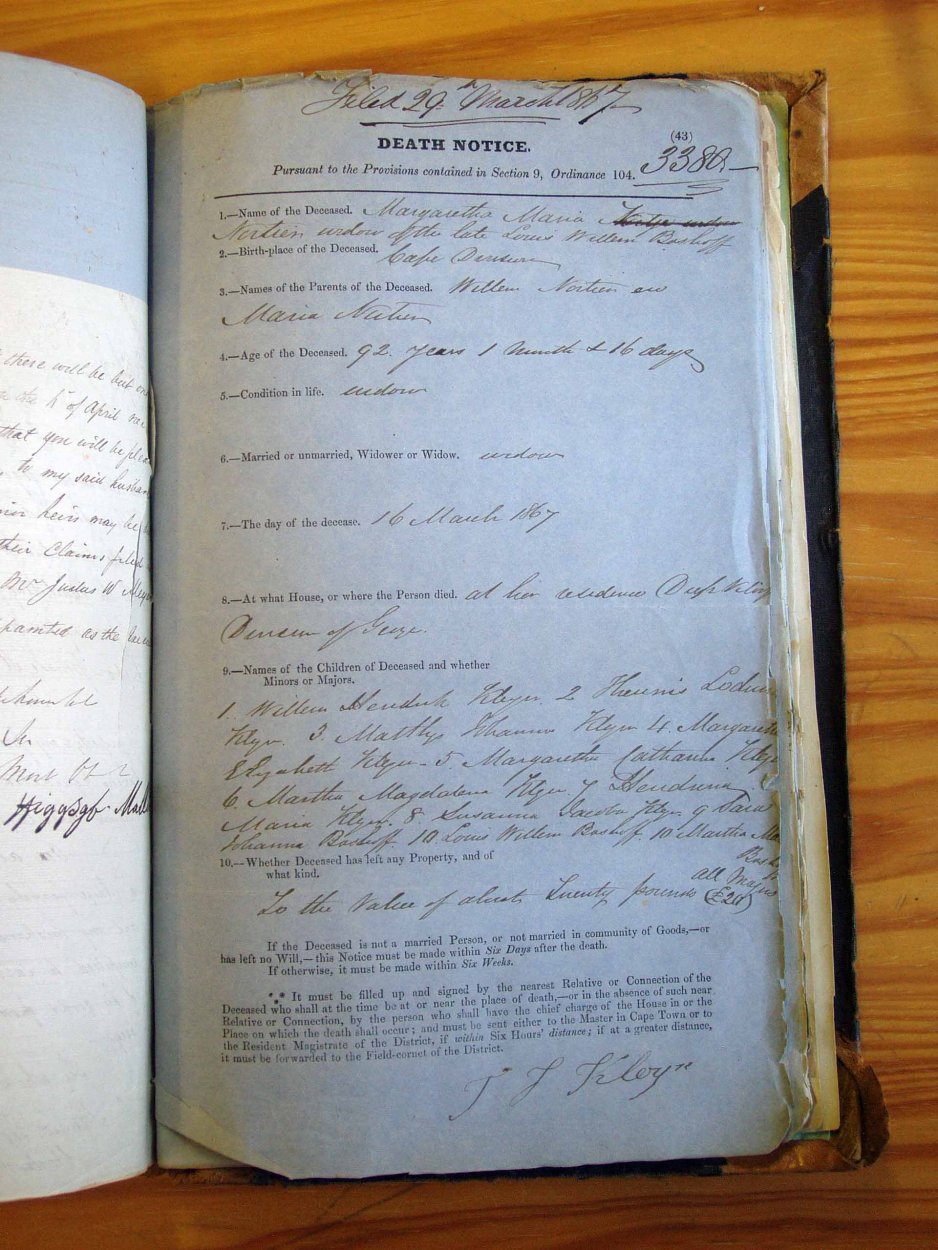 there will be but
the 4th of April
that you will be
to my said husban
heirs may be
their Claims filed
Mr Justus W
as the
Filed 29th March 1867
DEATH NOTICE.
(43)
3380
Pursuant to the Provisions contained in Section 9, Ordinance 104.
1.—Name of the Deceased. Margaretha Maria
Nortien widow of the late Louis Willem Boshoff
2.—Birth-place of the Deceased. Cape Division
3.—Names of the Parents of the Deceased. Willem Nortien en
Maria Nortien
4.—Age of the Deceased. 92 years 1 month & 16 days
5.—Condition in life. widow
6.—Married or unmarried, Widower or Widow. widow
7.—The day of the decease. 16 March 1867
8.—At what House, or where the Person died. at her residence Diep Kloof
Division of George.
9.—Names of the Children of Deceased and whether
Minors or Majors.
1. Willem Hendrik Kleyn 2 Theunis
Kleyn. 3. Matthys Johannes Kleyn 4. Margaretha
Elizabeth Kleyn - 5 Margaretha Catharina Kleyn
6. Martha Magdalena Kleyn 7 Hendrina
Maria Kleyn. 8. Susanna Jacoba Kleyn 9 Sara
Johanna Boshoff 10. Louis Willem Boshoff. 10 Martha
all Majors
10.—Whether Deceased has left any Property, and of
what kind.
To the Value of about Twenty pounds (£20)
If the Deceased is not a married Person, or not married in community of Goods,—or
has left no Will,—this Notice must be made within Six Days after the death.
If otherwise, it must be made within Six Weeks.
*** It must be filled up and signed by the nearest Relative or Connection of the
Deceased who shall at the time be at or near the place of death,—or in the absence of such near
Relative or Connection, by the person who shall have the chief charge of the House in or the
Place on which the death shall occur; and must be sent either to the Master in Cape Town or to
the Resident Magistrate of the District, if within Six Hours' distance; if at a greater distance,
it must be forwarded to the Field-cornet of the District.
T J Kleyn